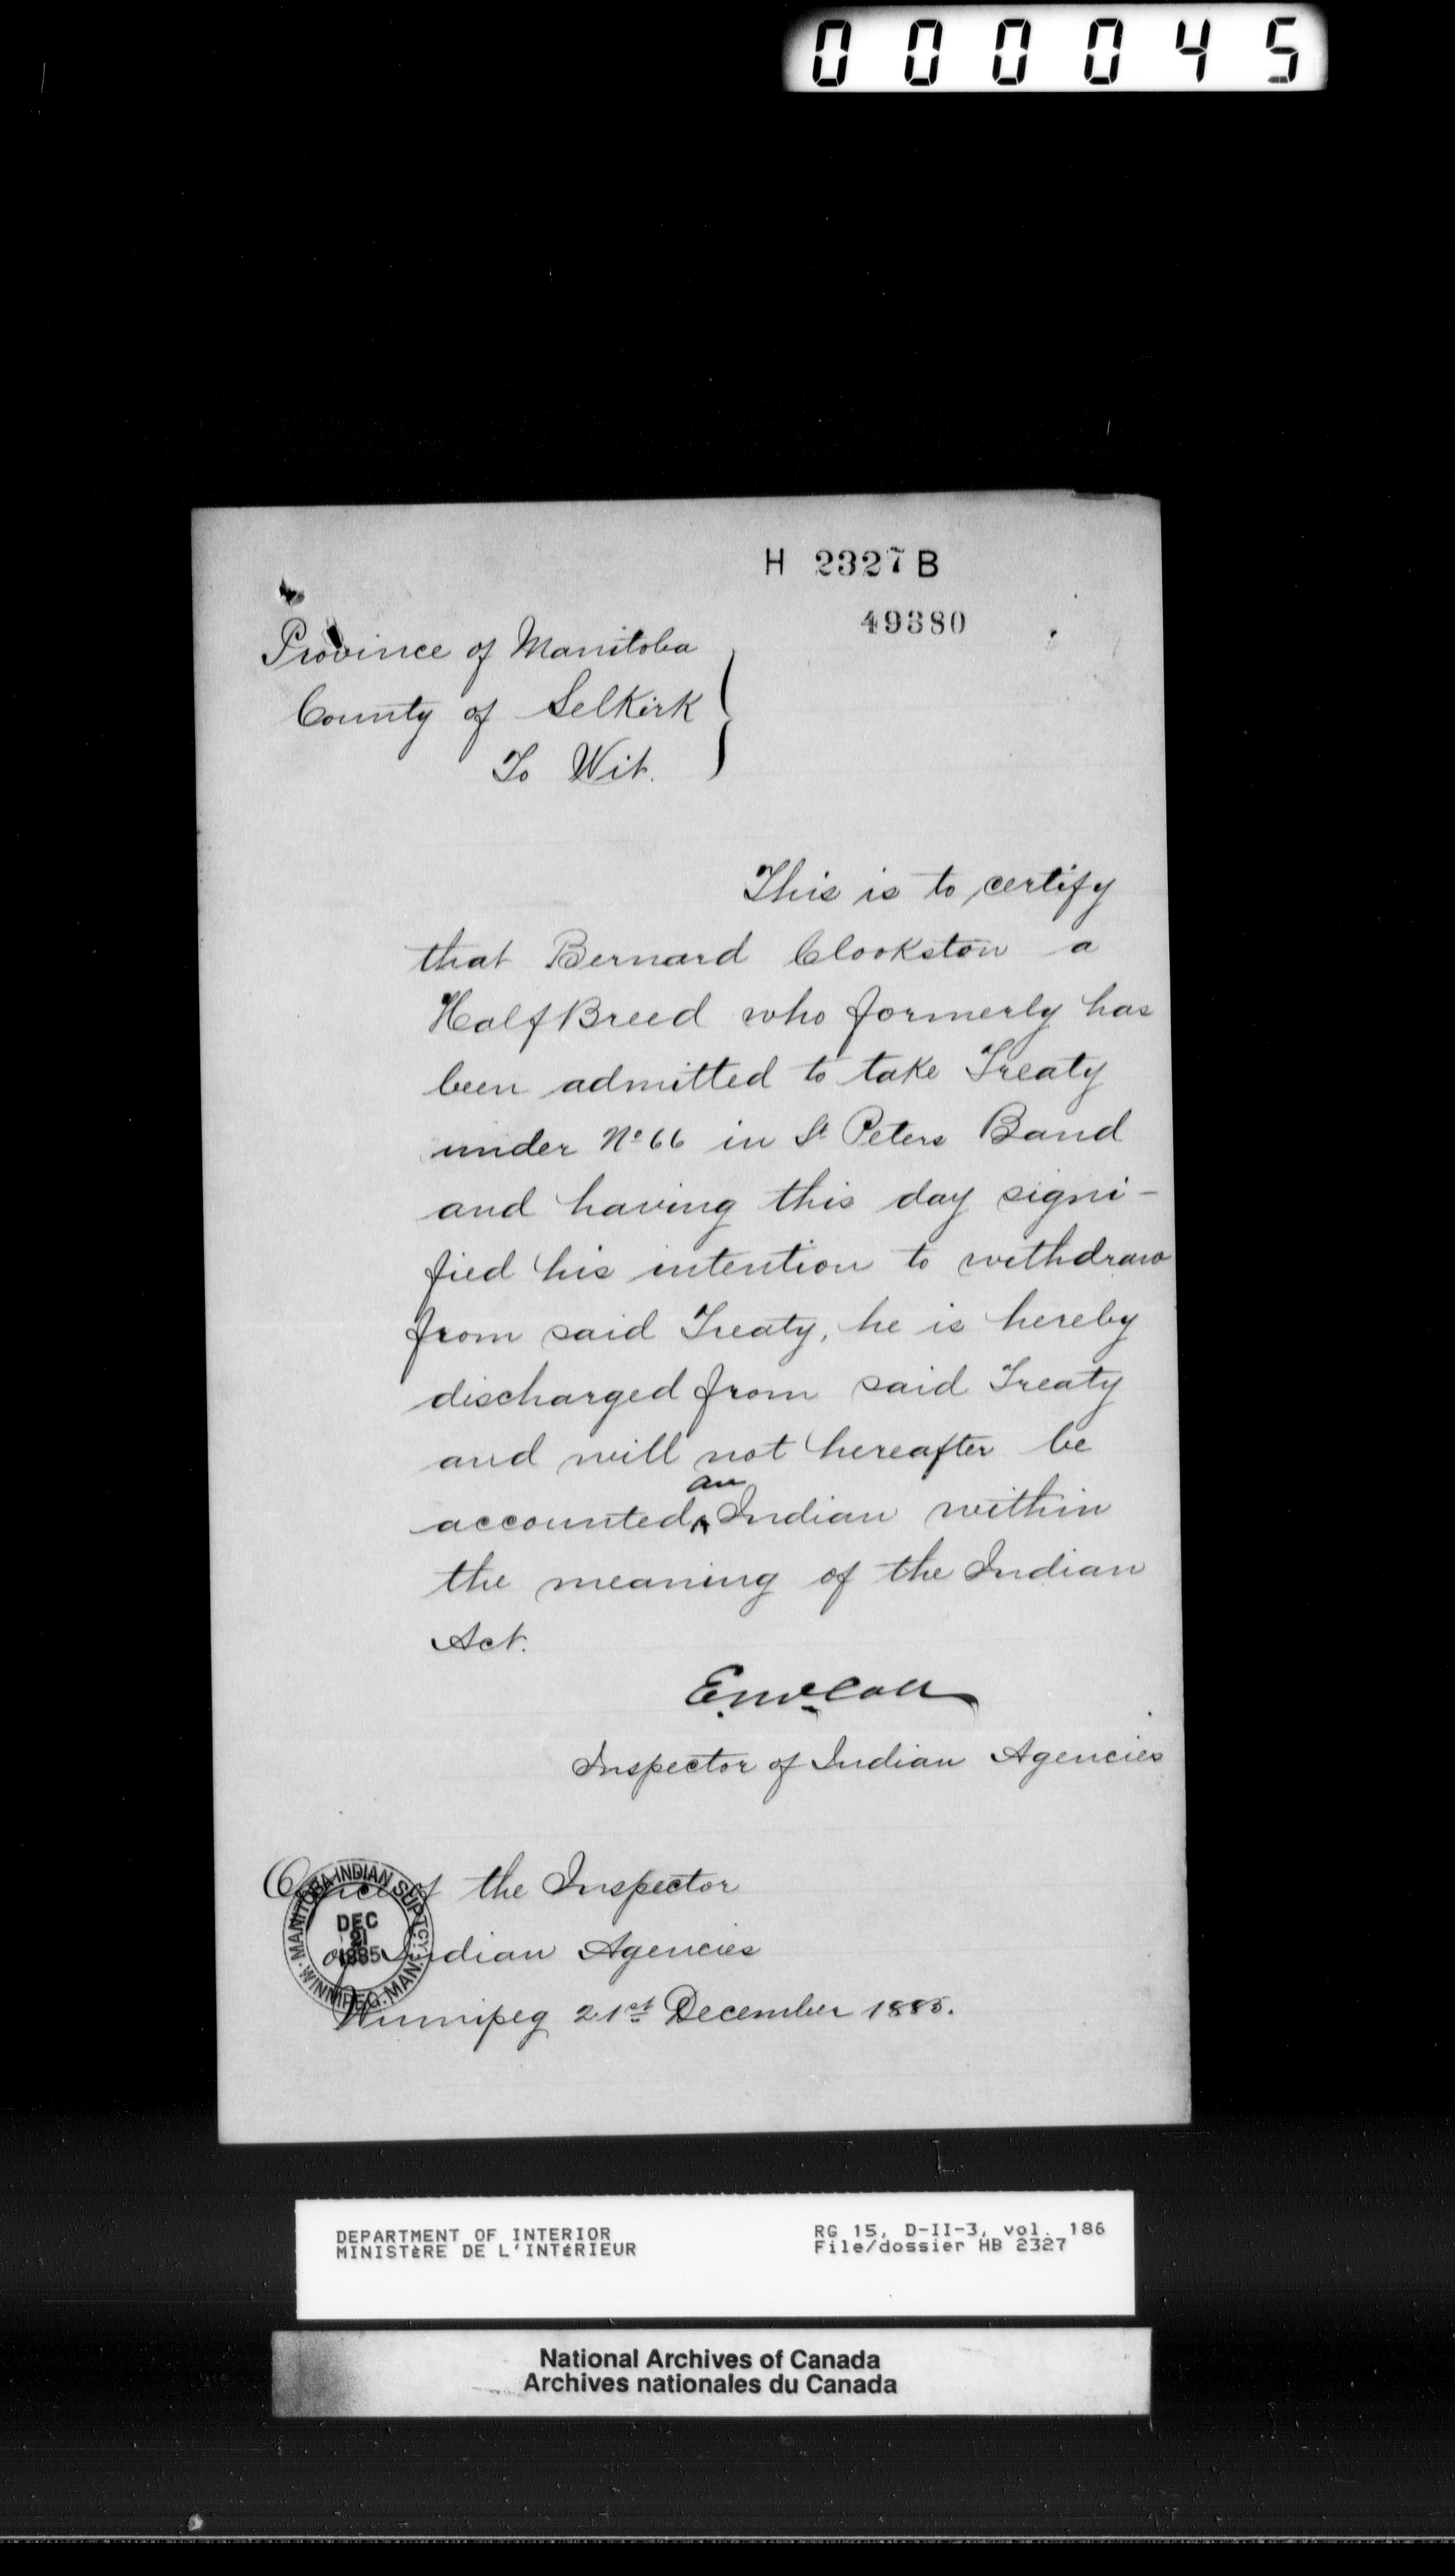 000045
H 2327 B
49380
Province of Manitoba
County of Selkirk
To Wit.
This is to certify
that Bernard Clookston a
Half Breed who formerly has
been admitted to take Treaty
under No 66 in St Peters Band
and having this day signi-
fied his intention to withdraw
from said Treaty, he is hereby
discharged from said Treaty
and will not hereafter be
accounted an Indian within
the meaning of the Indian
Act.
E. McColl
Inspector of Indian Agencies
Office of the Inspector
of Indian Agencies
Winnipeg 21st December 1885.
MANITOBA INDIAN SUP'TCY.
DEC
21
1885
WINNIPEG. MAN.
DEPARTMENT OF INTERIOR
MINISTèRE DE L'INTéRIEUR
RG 15, D-II-3, vol. 186
File/dossier HB 2327
National Archives of Canada
Archives nationales du Canada